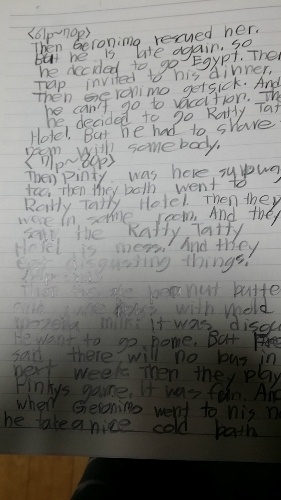 <61p~70p>
Then Geronimo rescued her.
But he is late again. so
he decided to go Egypt. Then
Trap invited to his dinner.
Then Geronimo getsick. And
he can't go to vacation. The
he decided to go Ratty Tat
Hotel. But he had to share
room with somebody.
<71p~80p>
Then Pinty was here supwa
too. Then they both went to
Ratty Tatty Hotel. Then they
were in same room. And they
saw the Ratty Tatty
Hotel is mess! And they
disgusting things!
nut butte
with mold
milk. It was disgu
He want to go home. But
said there will no bus in
next week Then they play
Pinkys game. It was fun. An
when Geronimo went to his
he take a nice cold bath